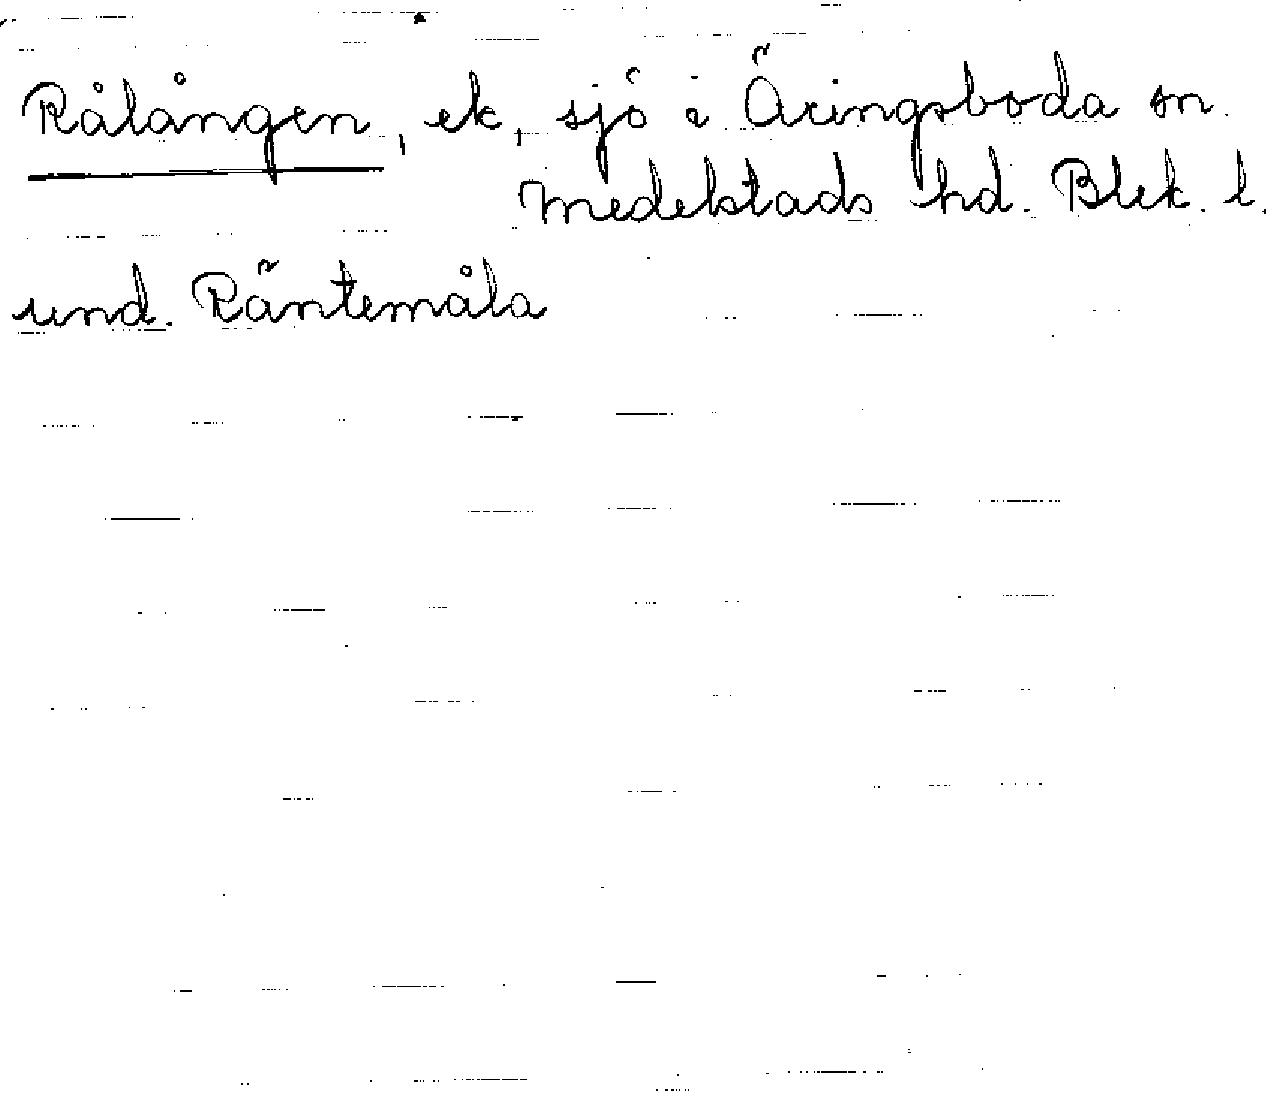 Rålången, ek, sjö i Äringsboda sn.
Medelstads hd. Blek. l.
und. Räntemåla